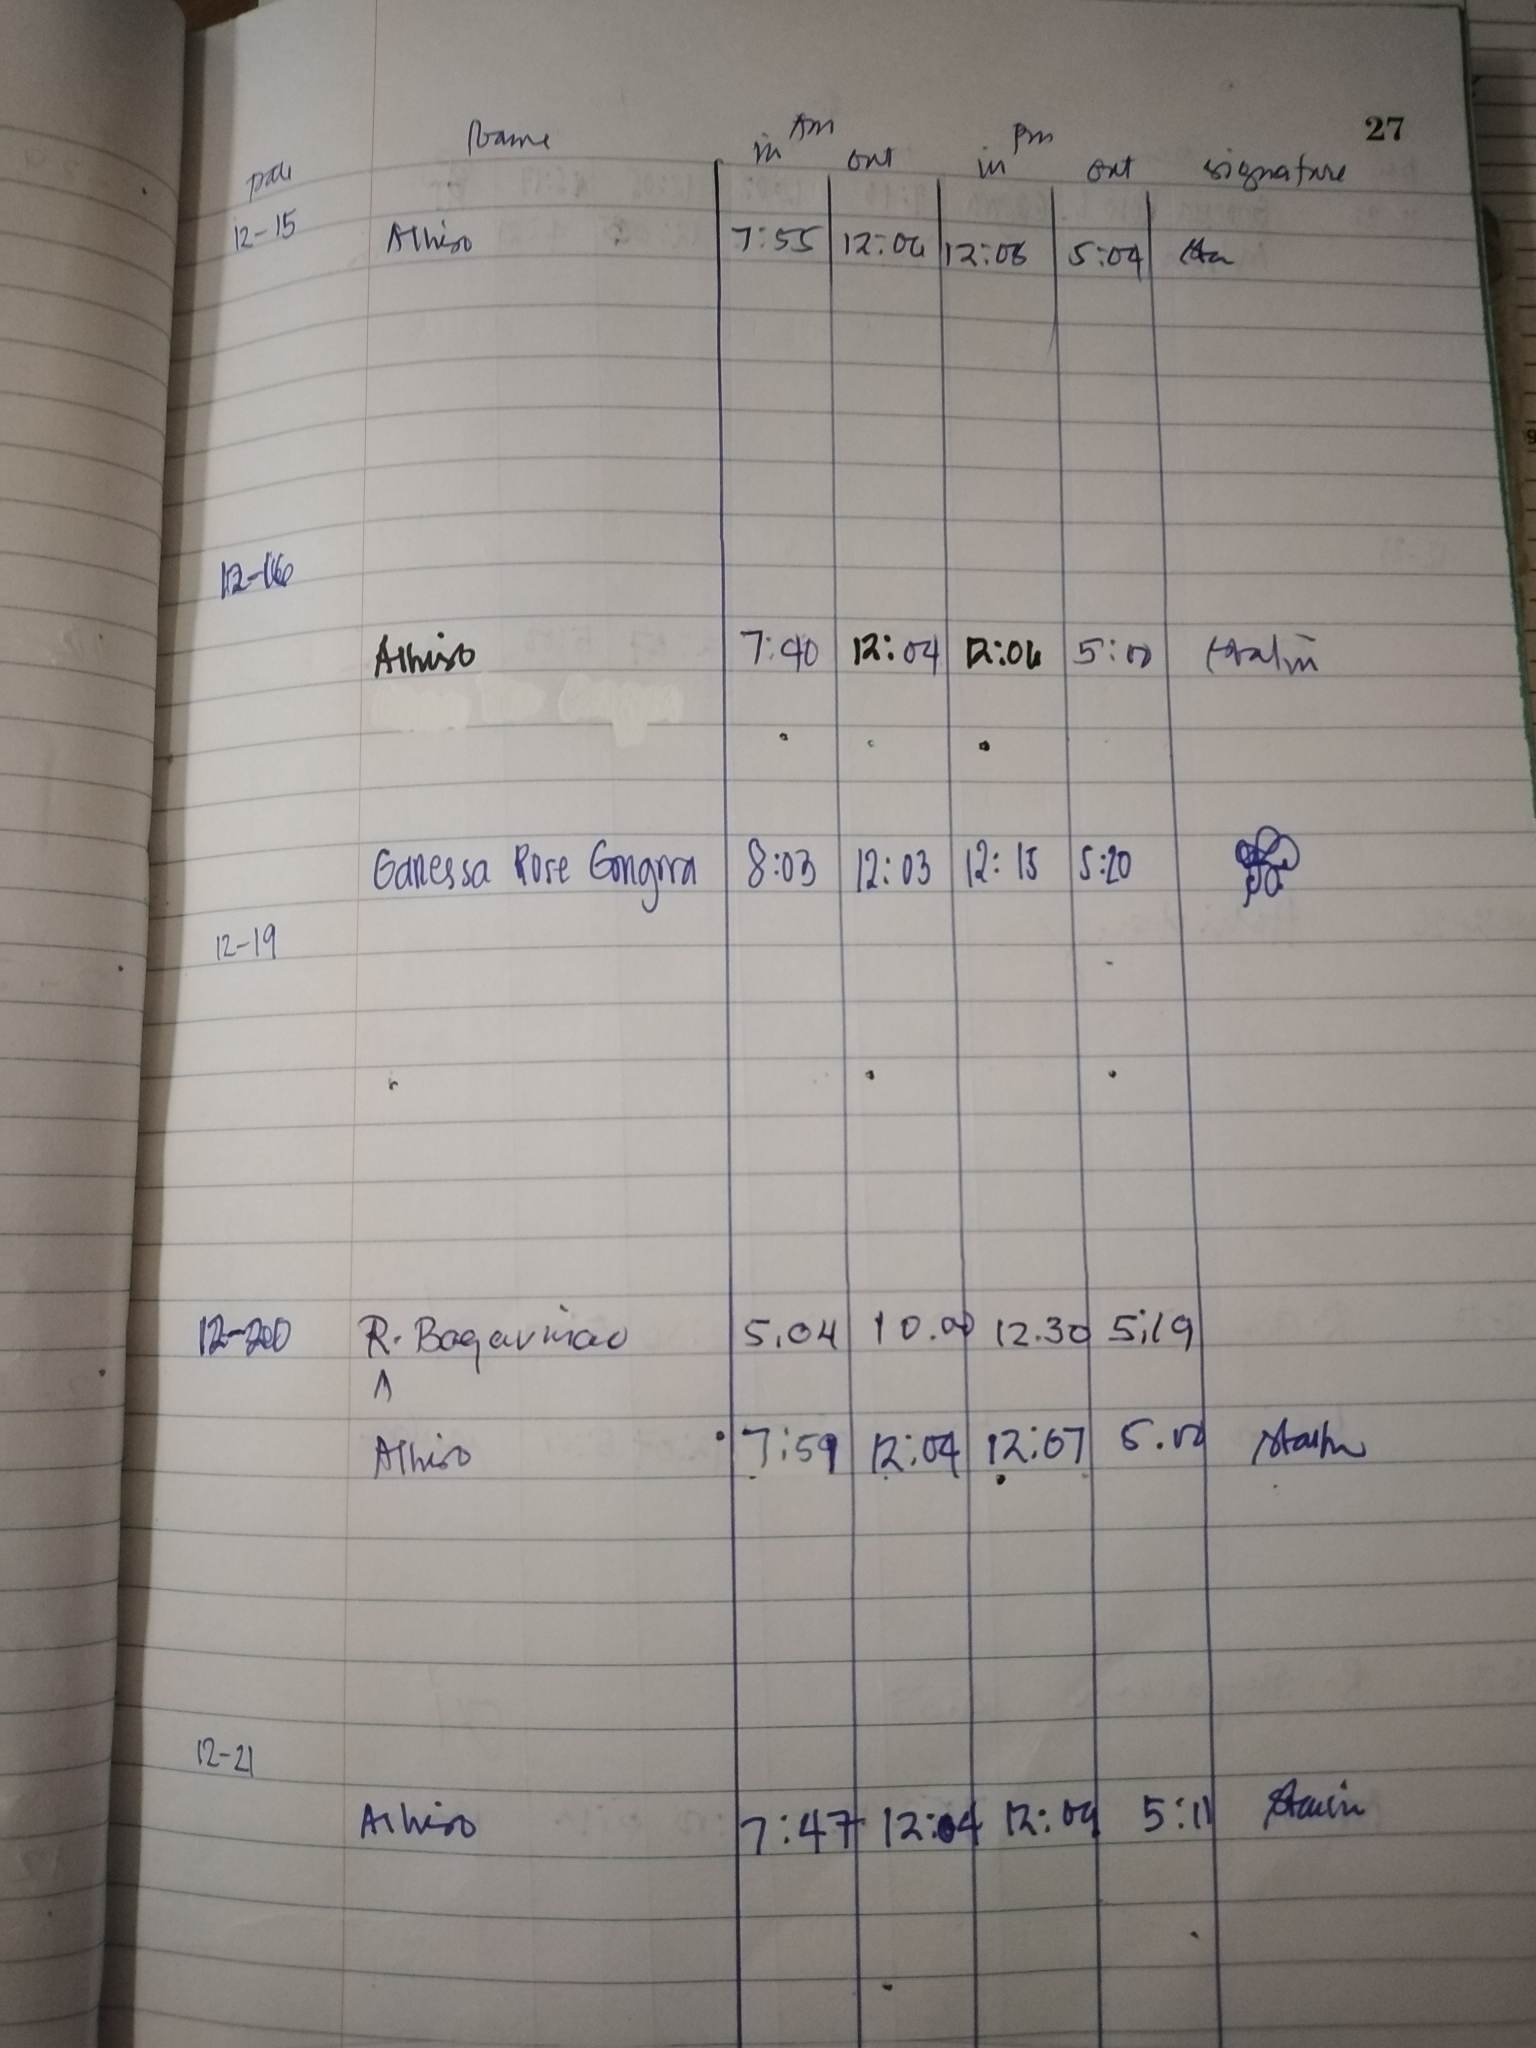 27
Name Am Pm
Date in out in out signature
12-15 Alhiso 7:55 12:04 12:06 5:04
12-16
Alhiso 7:40 12:04 12:06 5:00
Ganessa Rose Gongora 8:03 12:03 12:15 5:20
12-19
12-20 R. Bagavinao 5.04 10.00 12.30 5:19
A
Alhiso 7:59 12:04 12:07 5.00
12-21
Alhiso 7:47 12:04 12:09 5:11